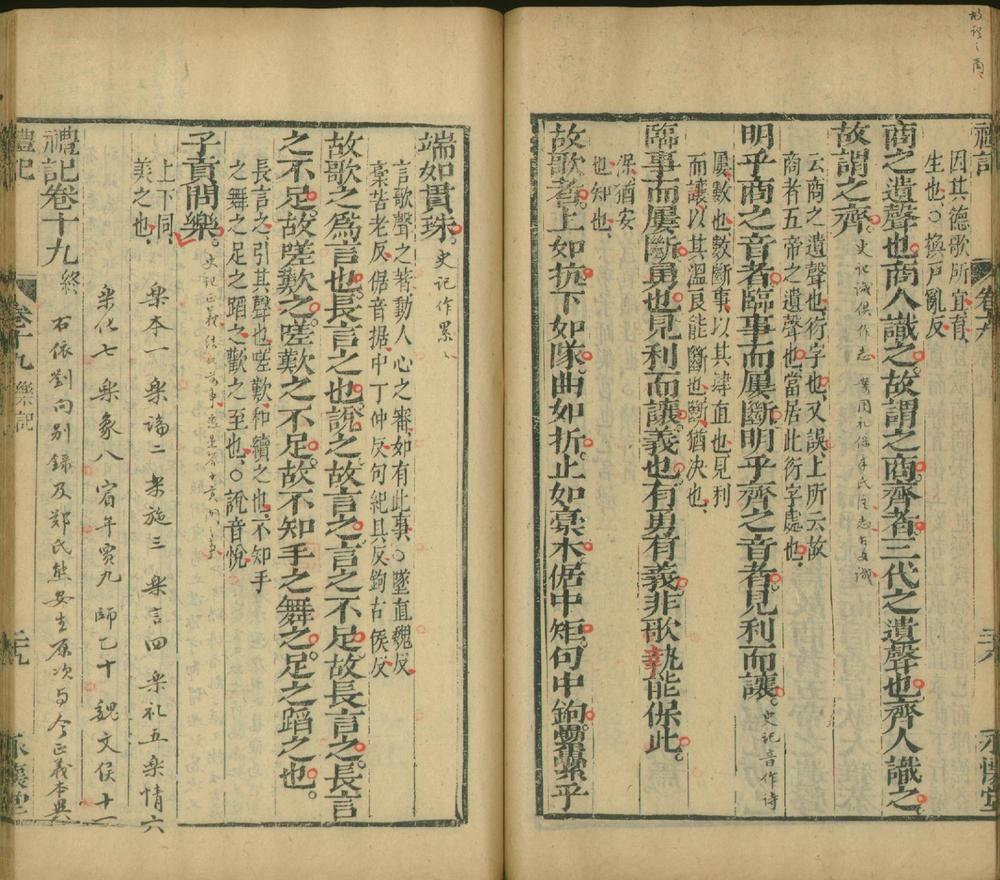 禮記
因其德歌所宜育
生也○換戶亂反
商之遺聲也商人識之故謂之商齊者三代之遺聲也齊人識之
故謂之齊
云商之遺聲也衍字也又誤上所云故
商者五帝之遺聲也當居此衍字處也
明乎商之音者臨事而屢斷明乎齊之音者見利而讓
史記音作詩
屢數也數斷事以其肆直也見利
而讓以其溫良能斷也斷猶決也
臨事而屢斷勇也見利而讓義也有勇有義非歌孰能保此
保猶安
也知也
故歌者上如抗下如隊曲如折止如槀木倨中矩句中鉤纍纍乎
端如貫珠
史記作累
言歌聲之著動人心之審如有此事○墜直魏反
槀苦老反倨音据中丁仲反句紀具反鉤古侯反
故歌之爲言也長言之也說之故言之言之不足故長言之長言
之不足故嗟歎之嗟歎之不足故不知手之舞之足之蹈之也
長言之引其聲也嗟歎和續之也不知手
之舞之足之蹈之歡之至也○說音悅
子貢問樂
上下同
美之也
樂本一 樂論二 樂施三 樂言四 樂礼五 樂情六
樂化七 樂象八 賓牟賈九 師乙十 魏文侯十一
禮記卷十九
終
右依劉向别錄及鄭氏
禮記
卷十九
樂記
永懷堂